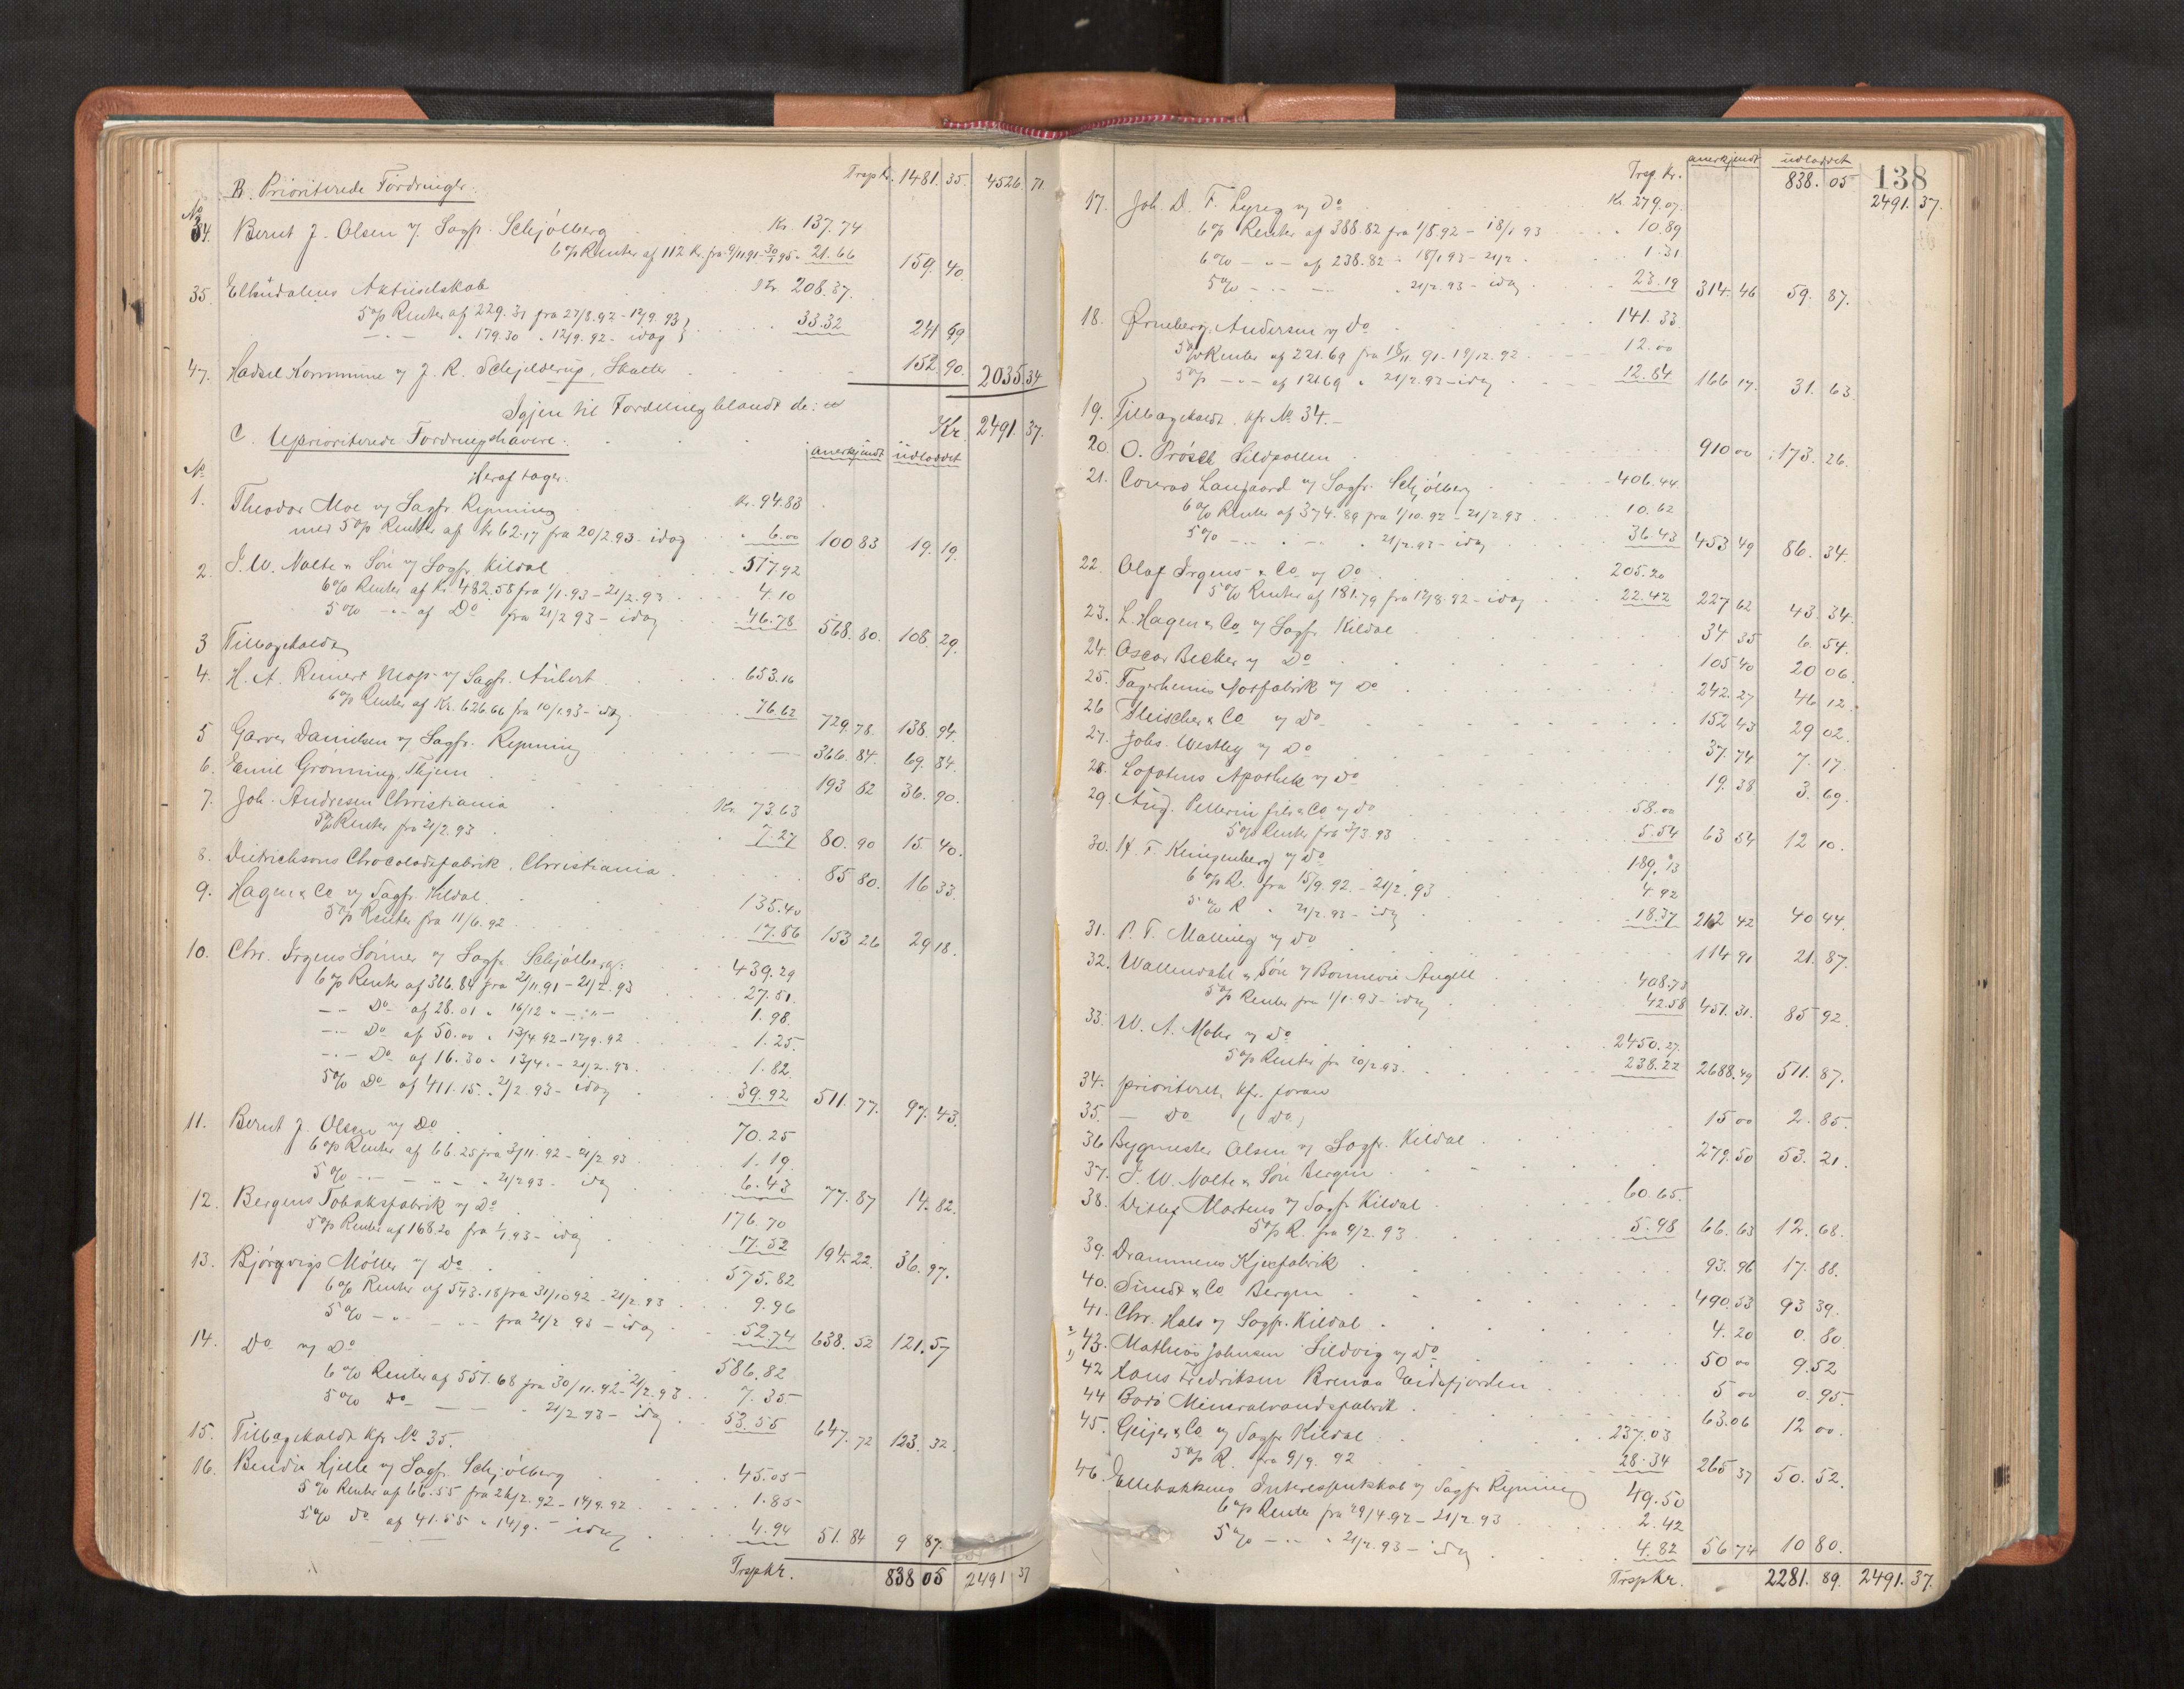 B. Prioriterede Fordringer: Trsp Kr. 1481. 35. 4526. 71.
No
34. Bernt J. Olsen v/ Sagf. Schjölberg Kr. 137.74
6% Renter af 112 Kr. fra 9/11 91 - 30/1 95 " 21.66 159. 40.
35. Ellendalens Aktieselskab Kr. 208.37.
5% Renter af 229.31 fra 27/8.92 - 12/9.93
— " — " 179.30 " 12/9.92 - idag 33.32 241 69
47. Hadsel Kommune v/ J. R. Schjelderup, Skatter 152 90. 2035 34
Igjen til Fordeling blandt de: Kr. 2491. 37.
C. Uprioriterede Fordringshavere: anerkjendt udloddet
No Heraf tager:
1. Theodor Moe v/ Sagf. Rynning Kr. 94.83
med 5% Renter af Kr 62.17 fra 20/2.93 - idag " 6.00 100 83 19. 19.
2. J. W. Nolte & Søn v/ Sagf. Kildal 517.92
6% Renter af Kr. 482.58 fra 1/1.93 - 21/2.93 4.10
5% — " — af Do fra 21/2 93 - idag 46.78 568. 80. 108. 29.
3 Tilbagekaldt
4. H. A. Reinert Neap. v/ Sagf. Aubert 653.16
6% Renter af Kr. 626.66 fra 10/1.93 - idag 76.62 729. 78. 138. 94.
5 Garver Danielsen v/ Sagf. Rynning — 366. 84. 69. 84.
6. Emil Grönning, Thjem 193 82 36. 90.
7. Joh. Andresen Christiania Kr. 73.63
5% Renter fra 21/2.93 7.27 80. 90 15 40.
8. Dietrichsons Chocoladefabrik, Christiania 85 80. 16 33.
9. Hagen & Co v/ Sagf. Kildal 135.40
5% Renter fra 11/6.92 17.86 153 26 29 18.
10. Chr. Irgens Sönner v/ Sagf. Schjölberg: 439.29
6% Renter af 366.84 fra 21/11.91 - 21/2.93 27.51.
— " — Do af 28.01 " 16/12 " — " — 1.98.
— " — Do af 50.00 " 13/4 92 - 12/9.92 1.25.
— " — Do af 16.30 " 13/4. " - 21/2.93. 1.82.
5% Do af 411.15. " 21/2 93 - idag 39.92 511. 77. 97. 43.
11. Bernt J. Olsen v/ Do 70.25
6% Renter af 66.25 fra 3/11.92 - 21/2 93 1.19.
5% — " — " — " 21/2 93 - idag 6.43 77. 87 14. 82.
12. Bergens Tobaksfabrik v/ Do 176.70
5% Renter af 168.20 fra 1/1.93 - idag 17.52 194. 22. 36. 97.
13. Bjørgvigs Møller v/ Do 575.82
6% Renter af 543.18 fra 31/10 92 - 21/2.93 9.96
5% — " — " — fra 21/2 93 - idag 52.74 638. 52 121. 57
14. Do v/ Do 586.82
6% Renter af 551.68 fra 30/11.92 - 21/2.93 7.35
5% Do — — " 21/2 93 - idag 53.55 647. 72 123. 32.
15. Tilbagekaldt kfr No 35.
16. Hjelle v/ Sagf. Schjölberg 45.05
5% Renter af 66.55 fra 26/2.92 - 14/9.92 1.85
5% do af 41.55 " 14/9. " - idag 4.94 51. 84 9 87.
Trsp Kr. 838 05 2491 37
138
anerkjendt udloddet
Trsp. Kr. 838. 05 2491. 37.
17. Joh. D. F. Lyreg v/ Do Kr. 279.07.
6% Renter af 388.82 fra 1/8.92 - 18/1 93 10.89
6% — " — af 238.82 " 18/1 93 - 21/2 " 1.31
5% — " — — " 21/2.93 - idag 23.19 314. 46 59. 87.
18. Ørneberg Andersen v/ do 141.33
5% Renter af 221.69 fra 18/11.91 - 19/12.92 12.00
5% — " — af 121.69 " 21/2.93 - idag 12.84 166 17. 31. 63.
19. Tilbagekaldt, kfr No 34. —
20. O. Prösch Sildpollen 910 00 173. 26.
21. Conrad Langaard v/ Sagfr. Schjölberg 406.44
6% Renter af 374.89 fra 1/10.92 - 21/2.93 10.62
5% — " — " 21/2.93 - idag 36.43 453 49 86. 34.
22. Olaf Irgens & Co v/ Do 205.20
5% Renter af 181.79 fra 12/8.92 - idag 22.42 227 62 43. 34.
23. L. Hagen & Co v/ Sagfr Kildal 34 35 6. 54.
24. Oscar Becker v/ Do 105 40 20 06.
25. Fagerheims Notfabrik v/ Do 242. 27 46 12.
26 Fleischer & Co v/ Do 152 43 29 02.
27. Johs. Westby v/ Do 37. 74 7. 17.
28. Lofotens Apothek v/ do 19. 38 3. 69.
29. Aug. Pellerin fils & Co v/ do 58.00
5% Renter fra 3/3.93 5.54 63 54 12 10.
30. H. F. Klingenberg v/ do 189.13
6% R. fra 15/9.92. - 21/2.93 4.92
5% R " 21/2.93 - idag 18.37 212 42 40 44.
31. P. T. Malling v/ do 114 91 21. 87.
32. Wallendahl & Søn v/ Bonnevie Angell 408.73
5% Renter fra 1/1.93 - idag 42.58 451. 31. 85 92.
33. W. A. Mohr v/ do 2450.27.
5% Renter fra 20/2.93. 238.22 2688. 49 511. 87.
34. prioriteret, kfr. foran
35. — do (do.) 15 00 2. 85.
36 Bygmester Olsen v/ Sagfr. Kildal 279. 50 53. 21.
37. J. W. Nolte & Søn Bergen
38. Ditlef Martens v/ Sagfr Kildal 60.65.
5% R. fra 9/2.93 5.98 66. 63 12. 68.
39. Drammens Kjexfabrik 93. 96 17. 88.
40. Sundt & Co Bergen 490. 53 93 39.
41. Chr. Hals v/ Sagfr. Kildal 4. 20 0. 80
43. Mathias Johnsen Sildvig v/ do 50 00 9. 52
42 Hans Fredriksen Brenna Eidsfjorden 5 00 0. 95.
44 Bodö Mineralvandsfabrik 63. 06 12 00.
45. Geijer & Co v/ Sagfr Kildal 237.03
5% R. fra 9/9.92 28.34 265 37 50. 52.
46. Ellebakkens Interessentskab v/ Sagfr Rynning 49.50
6% Renter fra 29/4.92 - 21/2.93 2.42
5% — " — " 21/2.93 - idag 4.82 56 74 10 80.
Trsp Kr. 2281. 89. 2491. 37.